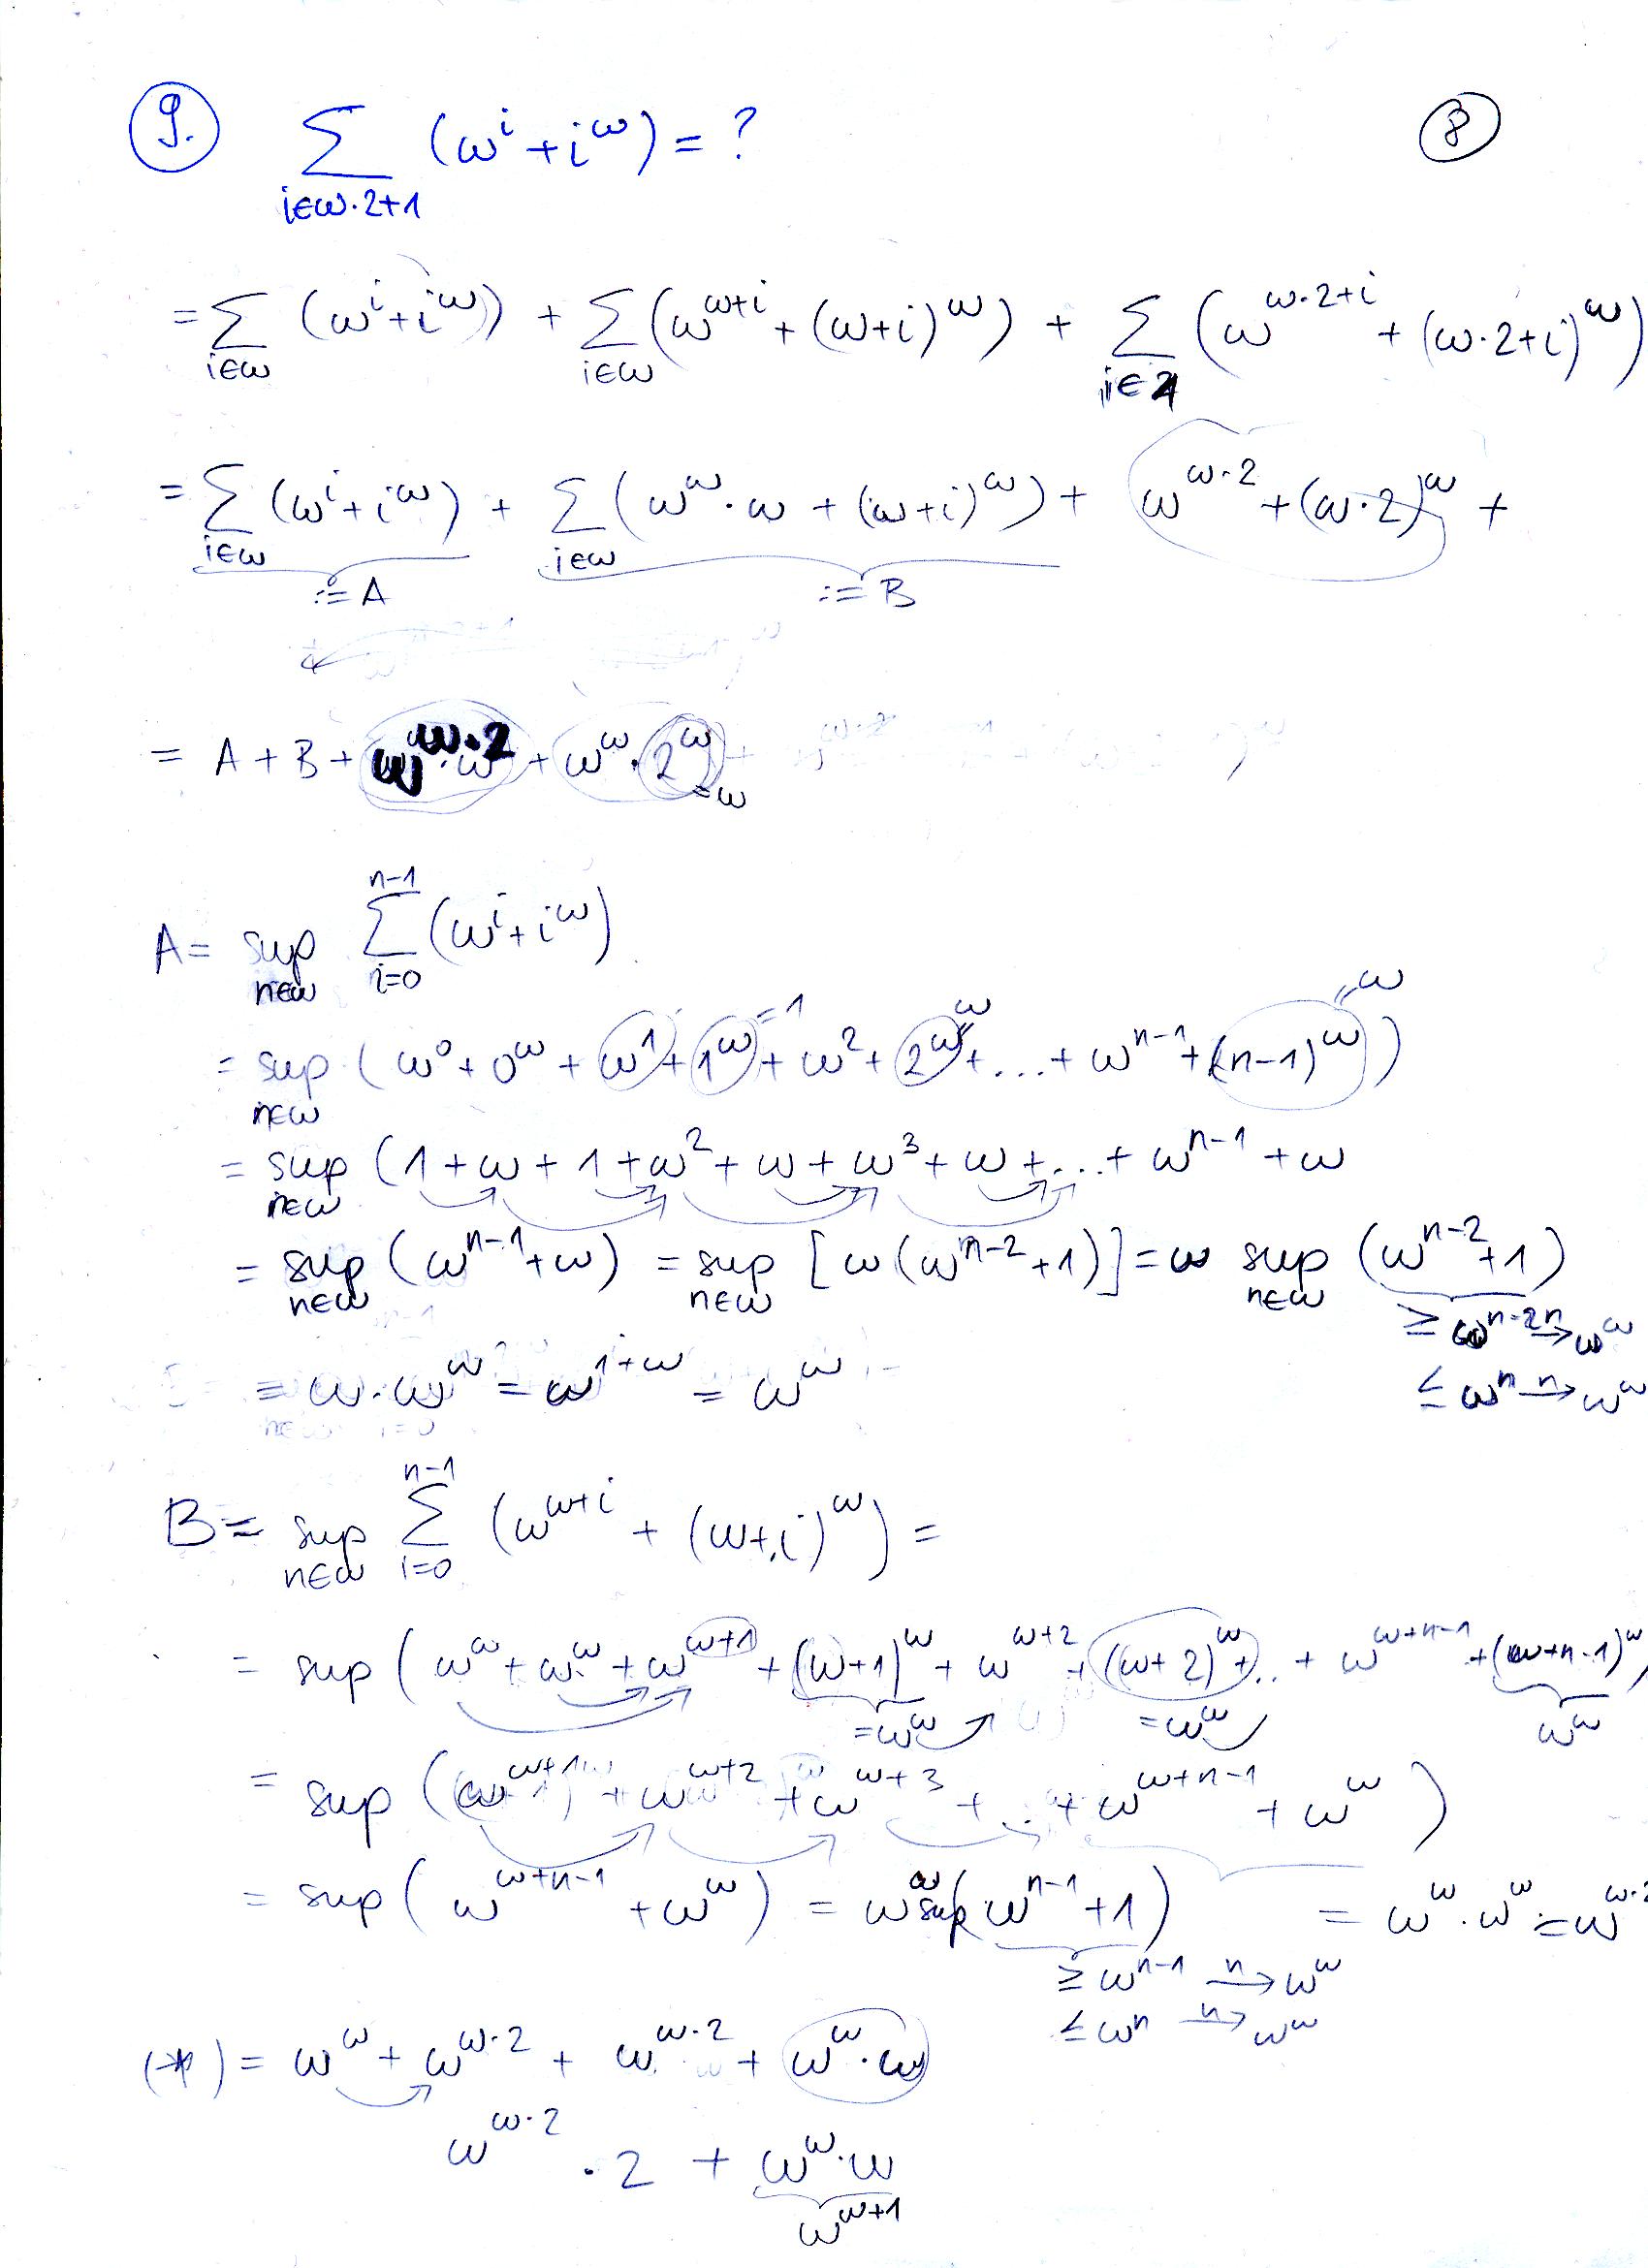 9. ∑_{i∈ω·2+1} (ω^i + i^ω) = ?
8
= ∑_{i∈ω} (ω^i + i^ω) + ∑_{i∈ω} (ω^{ω+i} + (ω+i)^ω) + ∑_{i∈1} (ω^{ω·2+i} + (ω·2+i)^ω)
= ∑_{i∈ω} (ω^i + i^ω) + ∑_{i∈ω} (ω^ω·ω + (ω+i)^ω) + ω^{ω·2} + (ω·2)^ω +
:= A := B
= A + B + ω^{ω·2} + ω^ω · 2^ω
= ω
A = sup_{n∈ω} ∑_{i=0}^{n-1} (ω^i + i^ω)
= sup_{n∈ω} (ω^0 + 0^ω + ω^1 + 1^ω + ω^2 + 2^ω + ... + ω^{n-1} + (n-1)^ω)
=1 =ω =ω
= sup_{n∈ω} (1 + ω + 1 + ω^2 + ω + ω^3 + ω + ... + ω^{n-1} + ω
= sup_{n∈ω} (ω^{n-1} + ω) = sup_{n∈ω} [ω(ω^{n-2} + 1)] = ω sup_{n∈ω} (ω^{n-2} + 1)
≥ ω^{n-2} →^n ω^ω
≤ ω^n →^n ω^ω
= ω·ω^ω = ω^{1+ω} = ω^ω
B = sup_{n∈ω} ∑_{i=0}^{n-1} (ω^{ω+i} + (ω+i)^ω) =
= sup (ω^ω + ω^ω + ω^{ω+1} + (ω+1)^ω + ω^{ω+2} + (ω+2)^ω + .. + ω^{ω+n-1} + (ω+n-1)^ω)
= ω^ω = ω^ω ω^ω
= sup (ω^{ω+1} + ω^{ω+2} + ω^{ω+3} + ... + ω^{ω+n-1} + ω^ω)
= sup (ω^{ω+n-1} + ω^ω) = ω^ω sup (ω^{n-1} + 1) = ω^ω · ω^ω = ω^{ω·2}
≥ ω^{n-1} →^n ω^ω
≤ ω^n →^n ω^ω
(*) = ω^ω + ω^{ω·2} + ω^{ω·2} + ω^ω·ω
ω^{ω·2} · 2 + ω^ω·ω
ω^{ω+1}